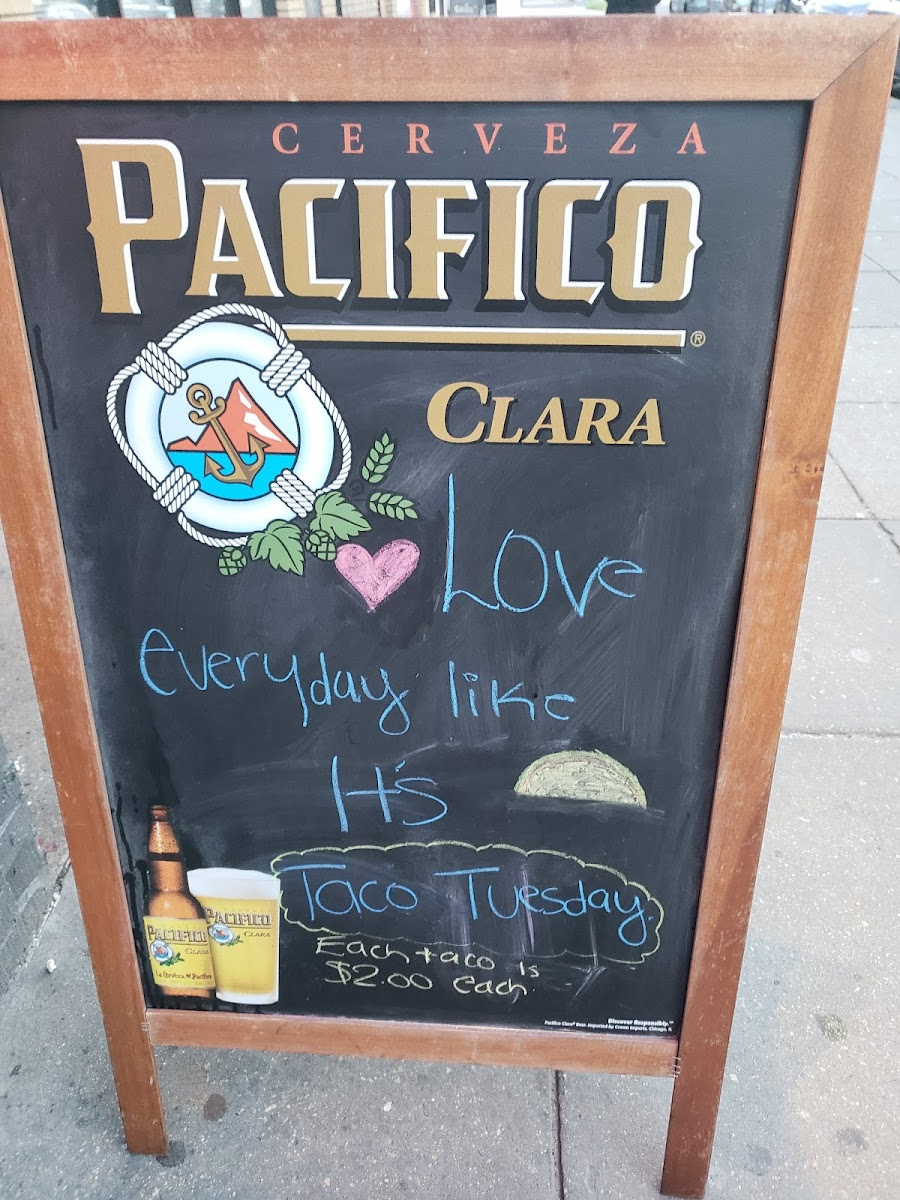 CERVEZA
PACIFICO
®
CLARA
Love
everyday like
It's
Taco Tuesday.
Each taco is
$2.00 each.
PACIFICO
CLARA
La Cerveza del Pacífico
PACIFICO
CLARA
Discover Responsibly.™
Pacifico Clara® Beer. Imported by Crown Imports, Chicago, IL